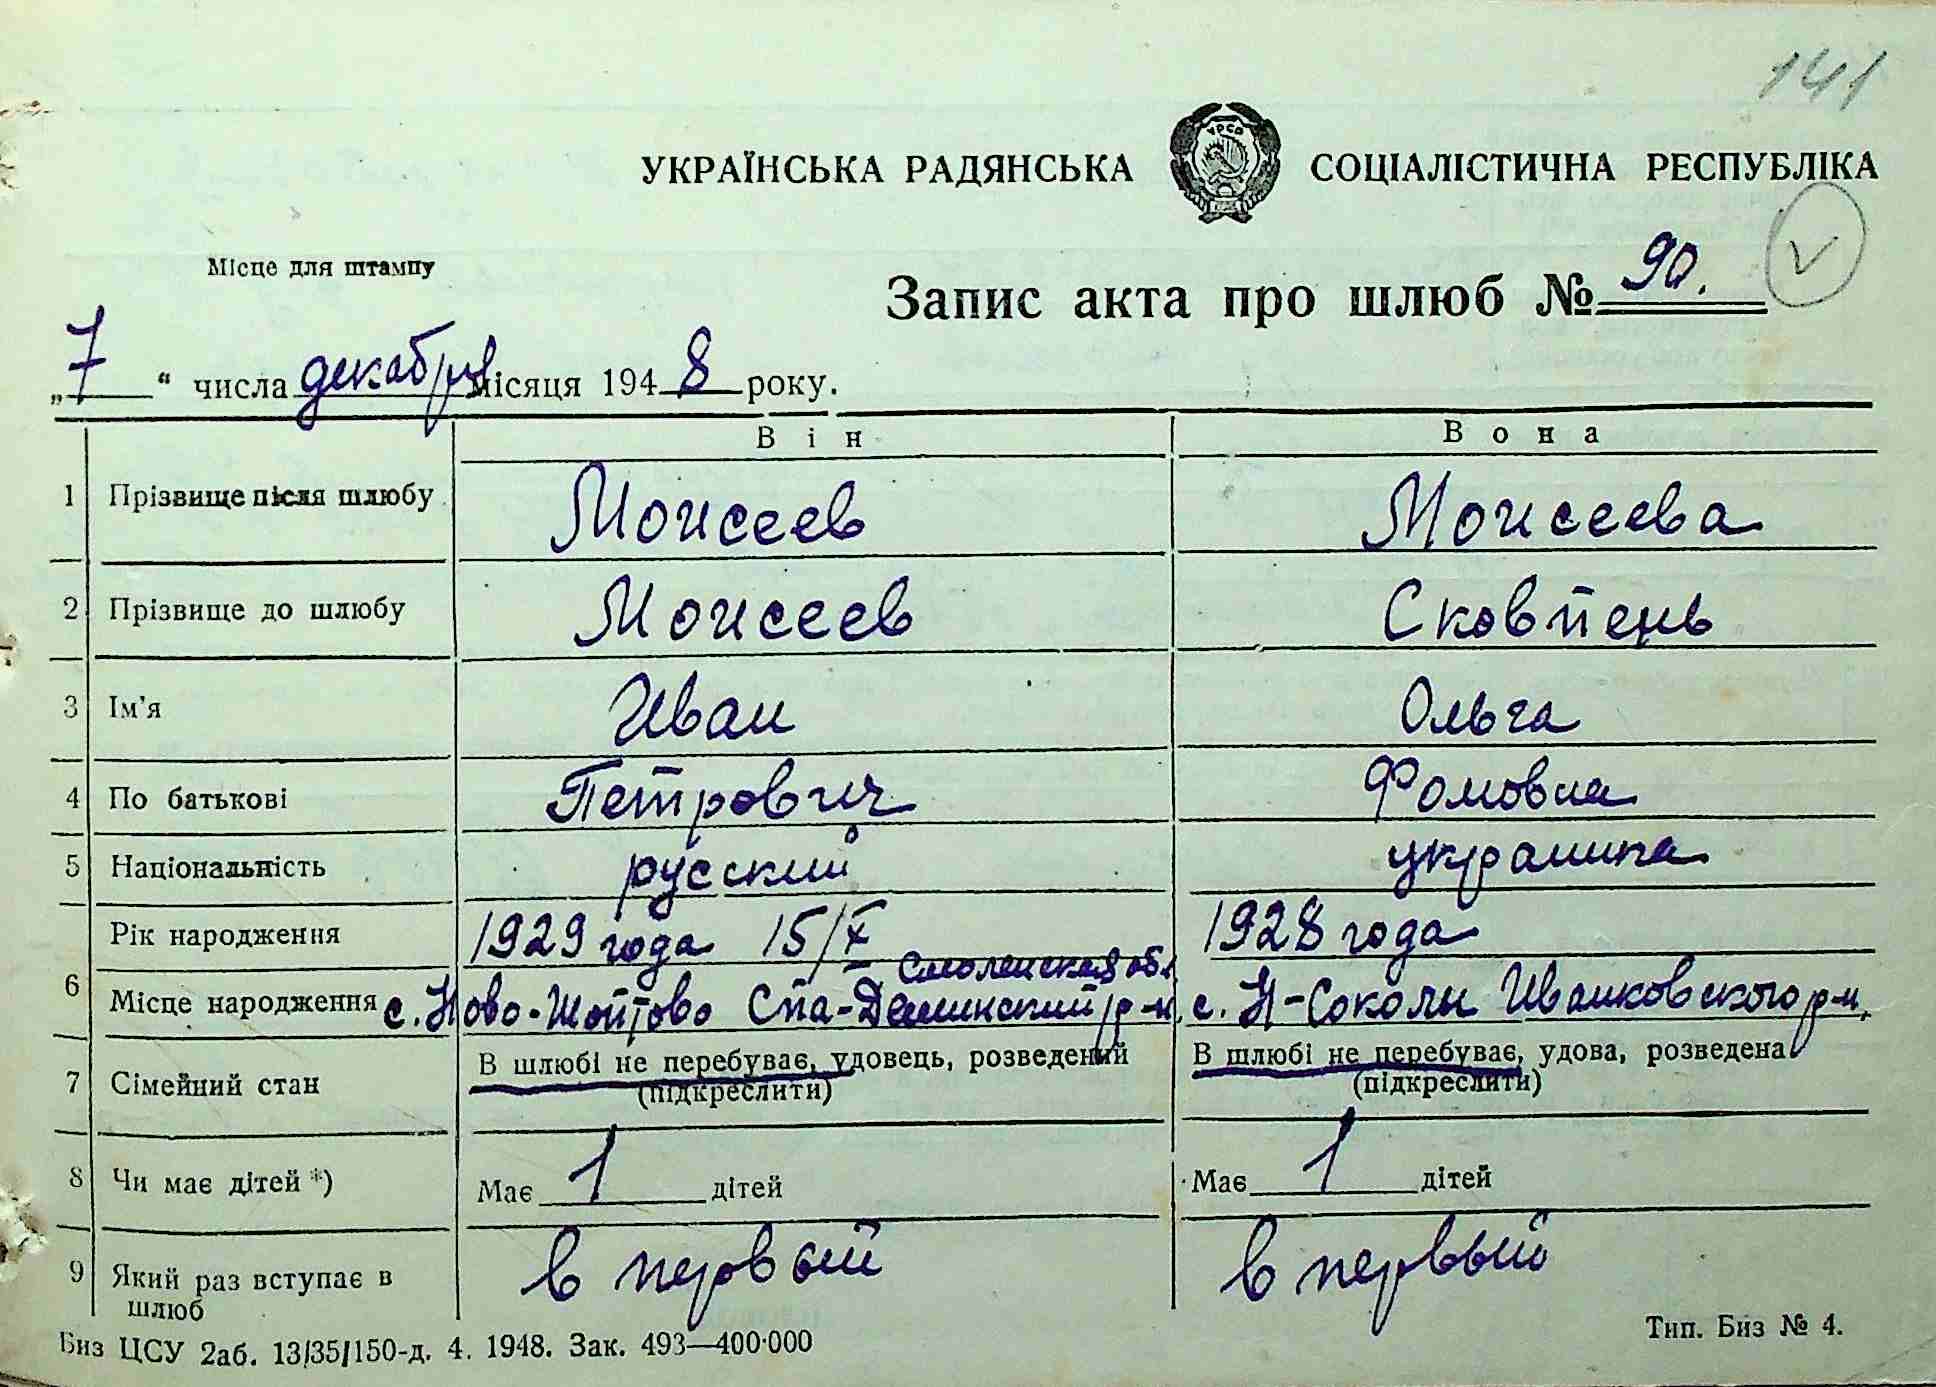 141
УКРАЇНСЬКА РАДЯНСЬКА СОЦІАЛІСТИЧНА РЕСПУБЛІКА
УРСР
Місце для штампу
Запис акта про шлюб № 90.
„7“ числа декабря місяця 1948 року.
Він Вона
1 Прізвище після шлюбу Моисеев Моисеева
2 Прізвище до шлюбу Моисеев Сковпень
3 Ім'я Иван Ольга
4 По батькові Петрович Фомовна
5 Національність русский украинка
6 Рік народження 1929 года 15/X 1928 года
Смоленская обл
Місце народження с. Ново-Шойтово Спа-Деминский р-н. с. Н-Соколы Иванковского р-н.
7 Сімейний стан В шлюбі не перебуває, удовець, розведений В шлюбі не перебуває, удова, розведена
(підкреслити) (підкреслити)
8 Чи має дітей *) Має 1 дітей Має 1 дітей
9 Який раз вступає в шлюб в первый в первый
Биз ЦСУ 2аб. 13/35/150-д. 4. 1948. Зак. 493—400·000 Тип. Биз № 4.